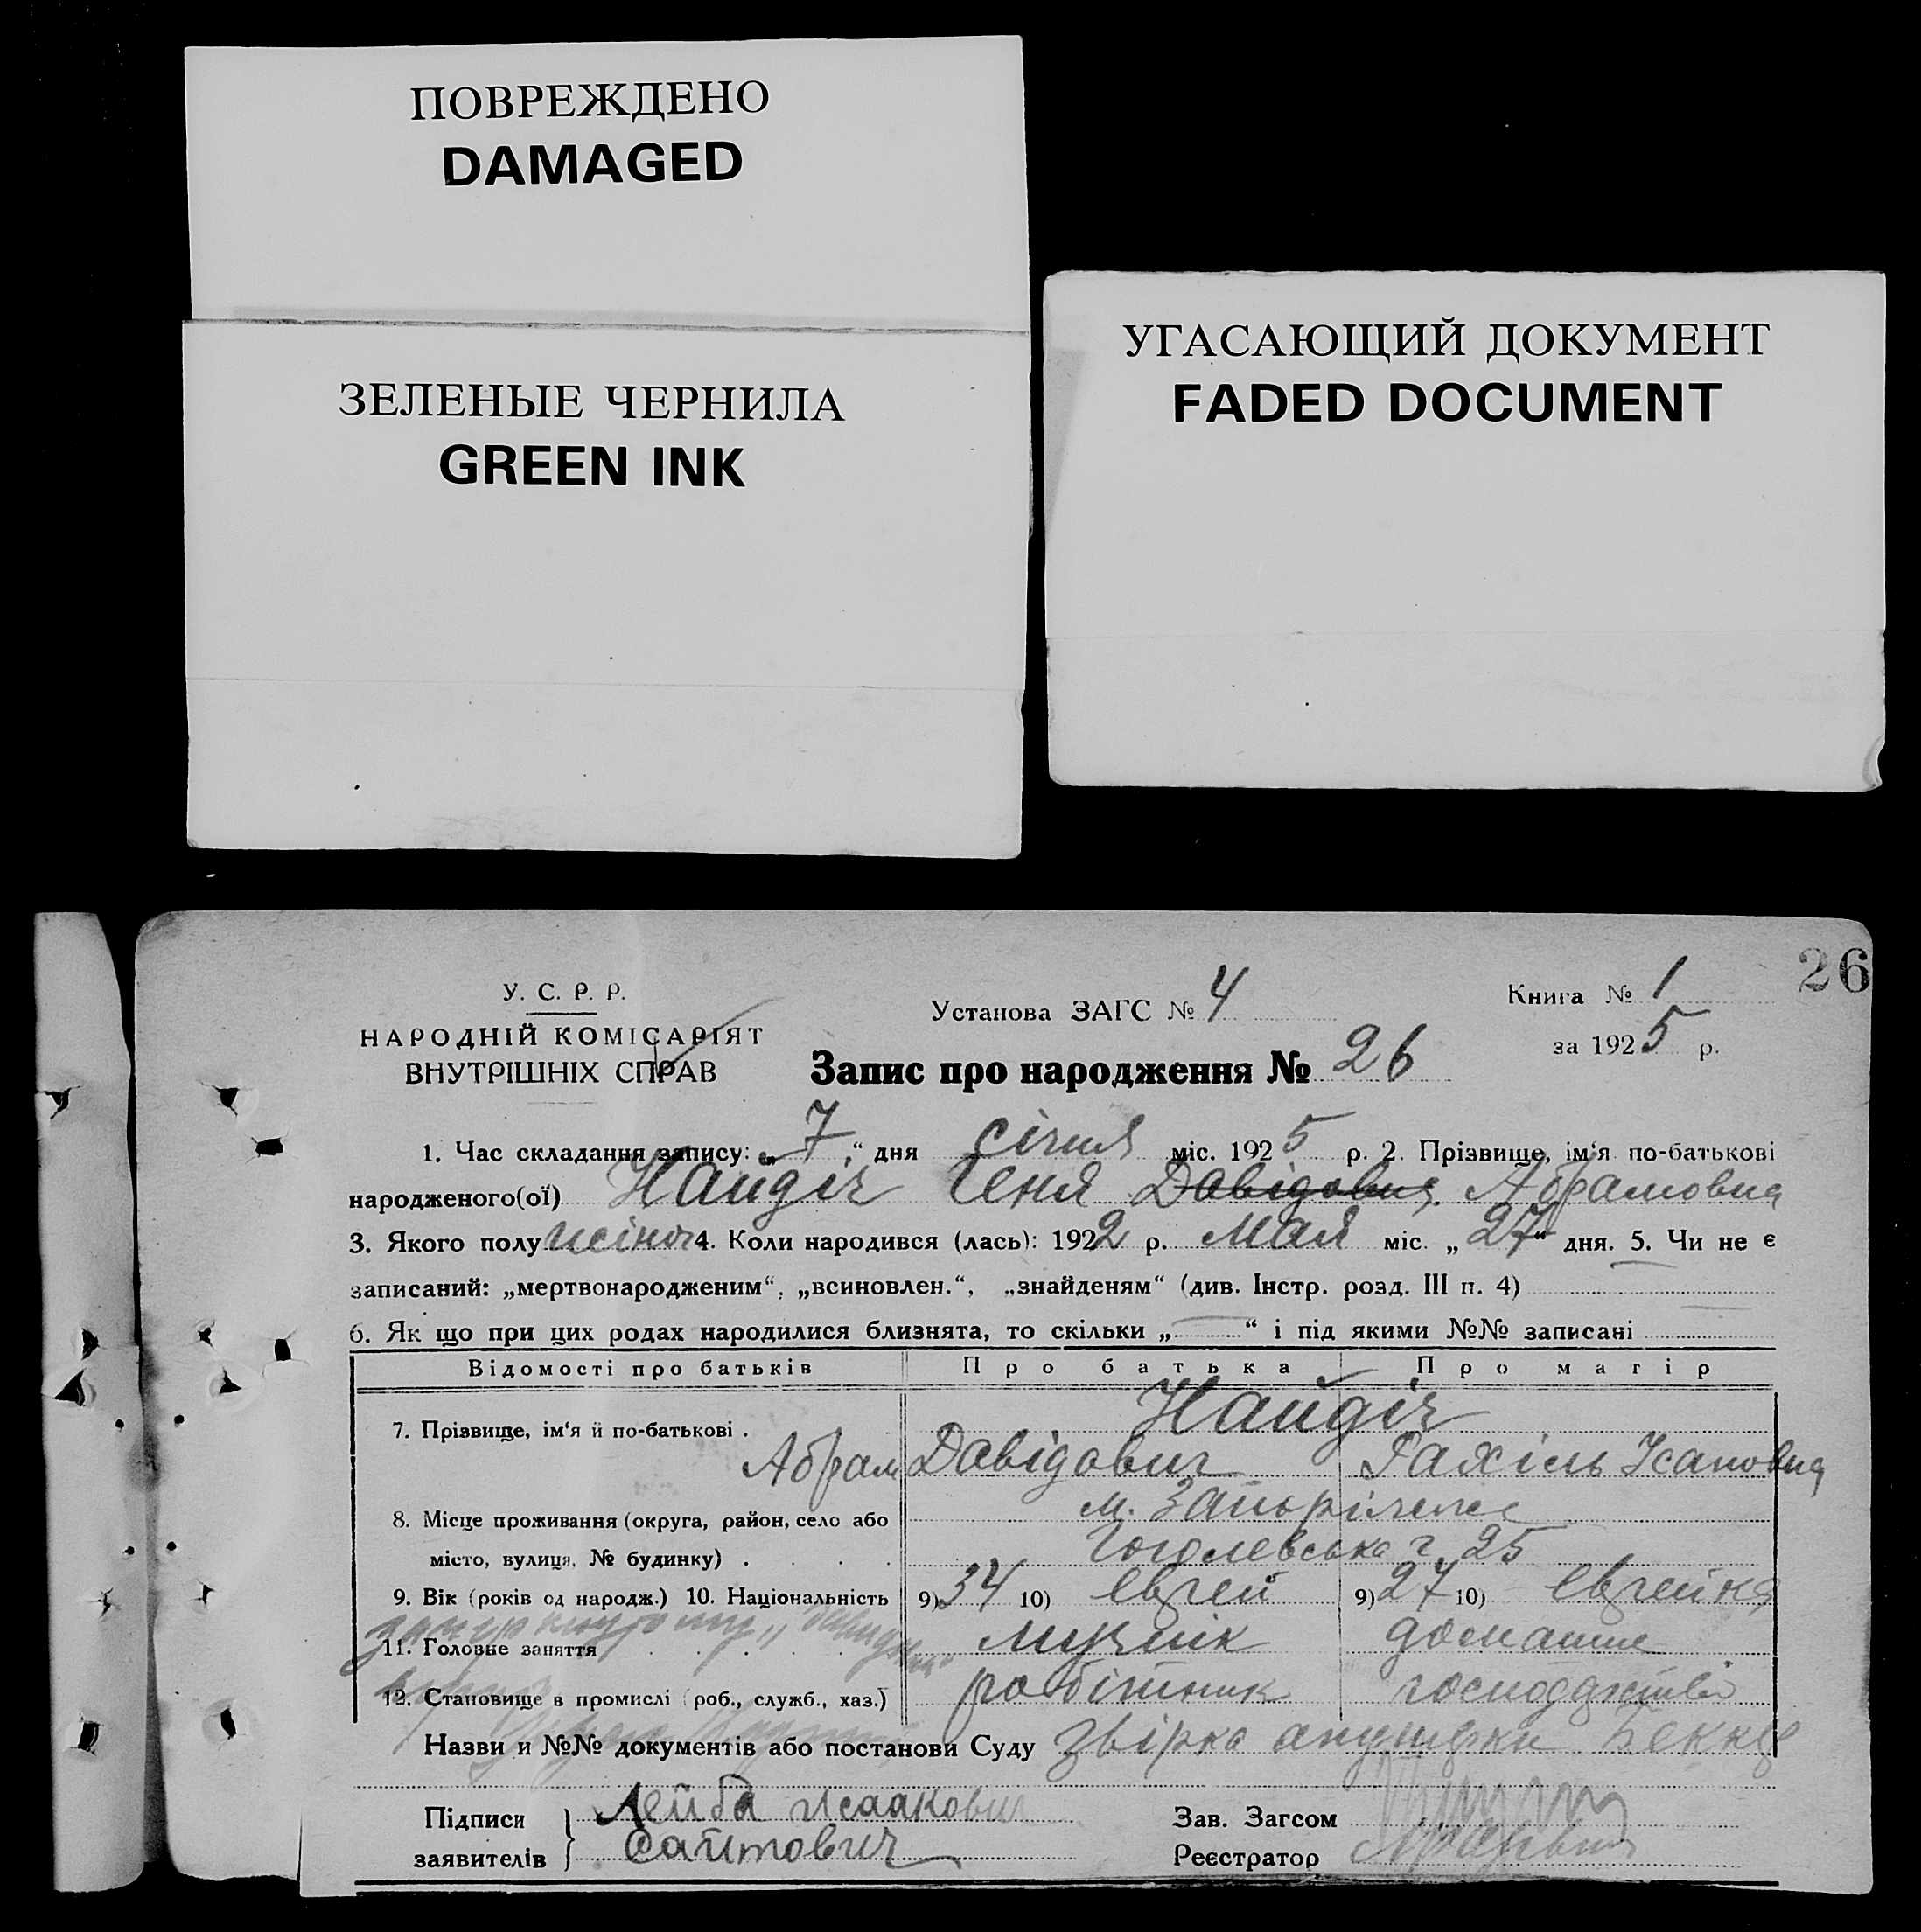 ПОВРЕЖДЕНО
DAMAGED
ЗЕЛЕНЫЕ ЧЕРНИЛА
GREEN INK
УГАСАЮЩИЙ ДОКУМЕНТ
FADED DOCUMENT
26
У. С. Р. Р.
НАРОДНІЙ КОМІСАРІЯТ
ВНУТРІШНІХ СПРАВ
Установа ЗАГС № 4
Книга № 1
за 1925 р.
Запис про народження № 26
1. Час складання запису: „7“ дня січня міс. 1925 р. 2. Прізвище, ім‘я по-батькові
народженого(ої) Найдіч Геня Давідовна Абрамовна
3. Якого полу жіноч 4. Коли народився (лась): 1922 р. мая міс. „27“ дня. 5. Чи не є
записаний: „мертвонародженим“, „всиновлен.“, „знайденям“ (див. Інстр. розд. III п. 4)
6. Як що при цих родах народилися близнята, то скільки „ “ і під якими №№ записані
Відомості про батьків Про батька Про матір
7. Прізвище, ім‘я й по-батькові . Найдіч
Абрам Давідович Рахіль
8. Місце проживання (округа, район, село або м.
місто, вулиця, № будинку) . . . . 25
9. Вік (років од народж.) 10. Національність 9) 34 10) Еврей 9) 27 10) Еврейка
11. Головне заняття . . . . домашне
12. Становище в промислі (роб., служб., хаз.) робітник
Назви и №№ документів або постанови Суду
Підписи Лейба Исаакович
заявителів
Зав. Загсом
Реєстратор